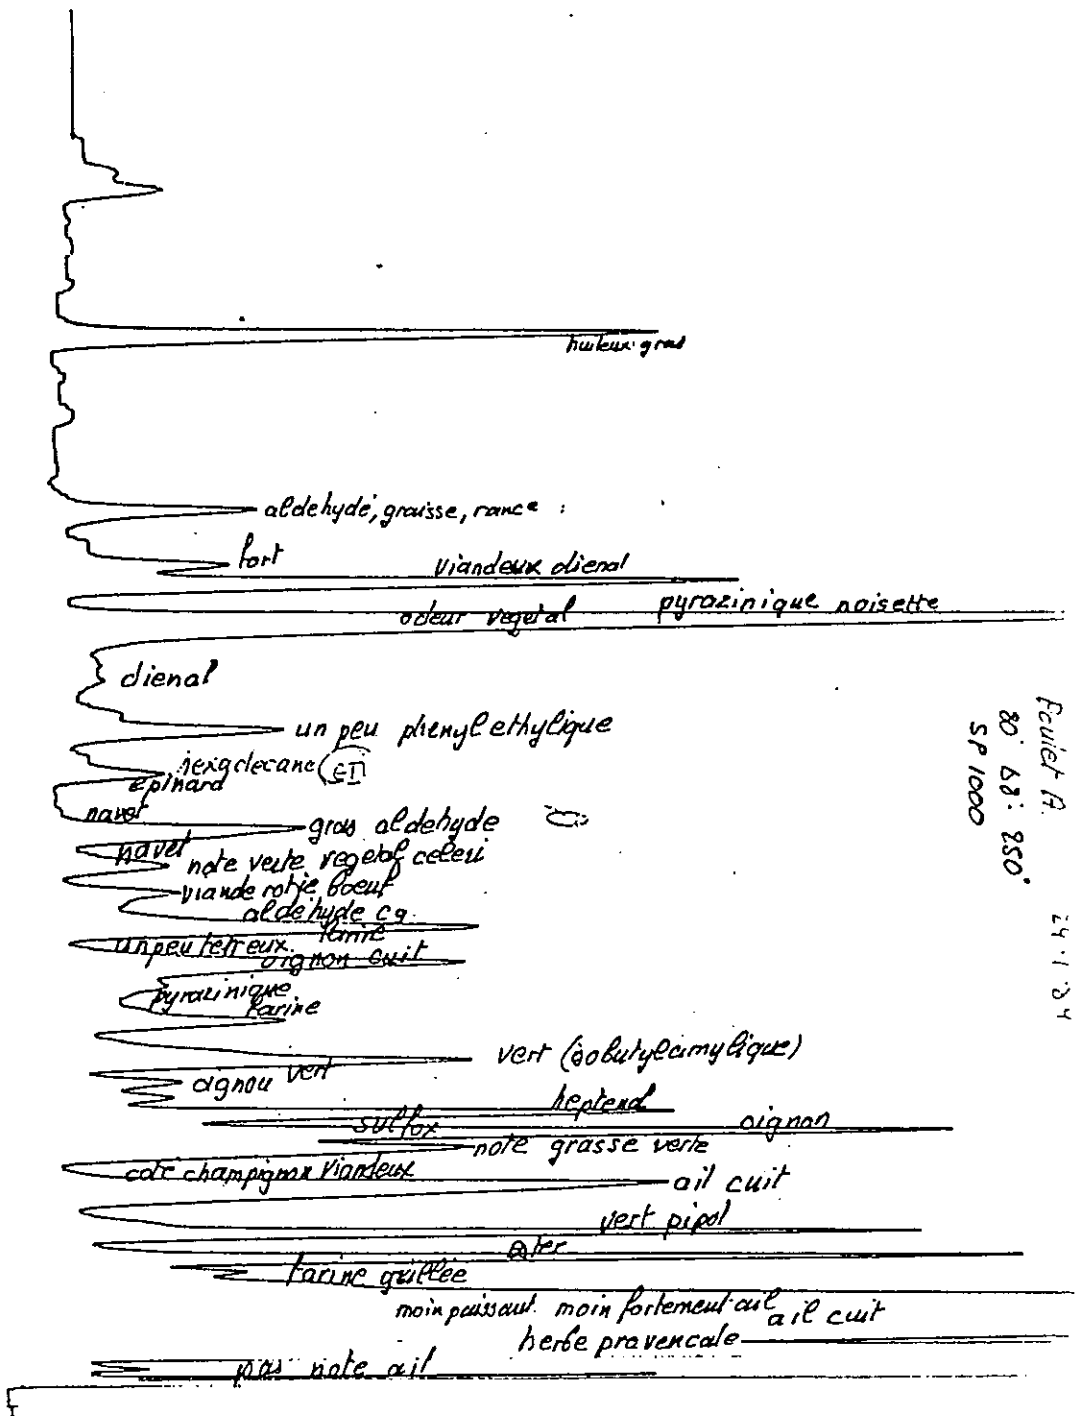 huileux gras
aldehyde, graisse, rance :
fort
viandeux dienal
pyrazinique noisette
odeur vegetal
dienal
un peu phenyl ethylique
epinard
navet
gras aldehyde
navet
note verte vegetal celeri
viande rotie boeuf
aldehyde c9
farine
un peu terreux
oignon cuit
pyrazinique
farine
vert (isobutylamylique)
vert
heptenal
oignon
note grasse verte
cote champignon viandeux
ail cuit
vert pipol
ester
farine grillée
moin puissant moin fortement ail
ail cuit
herbe provencale
pas note ail
80° 68° 250°
SP 1000